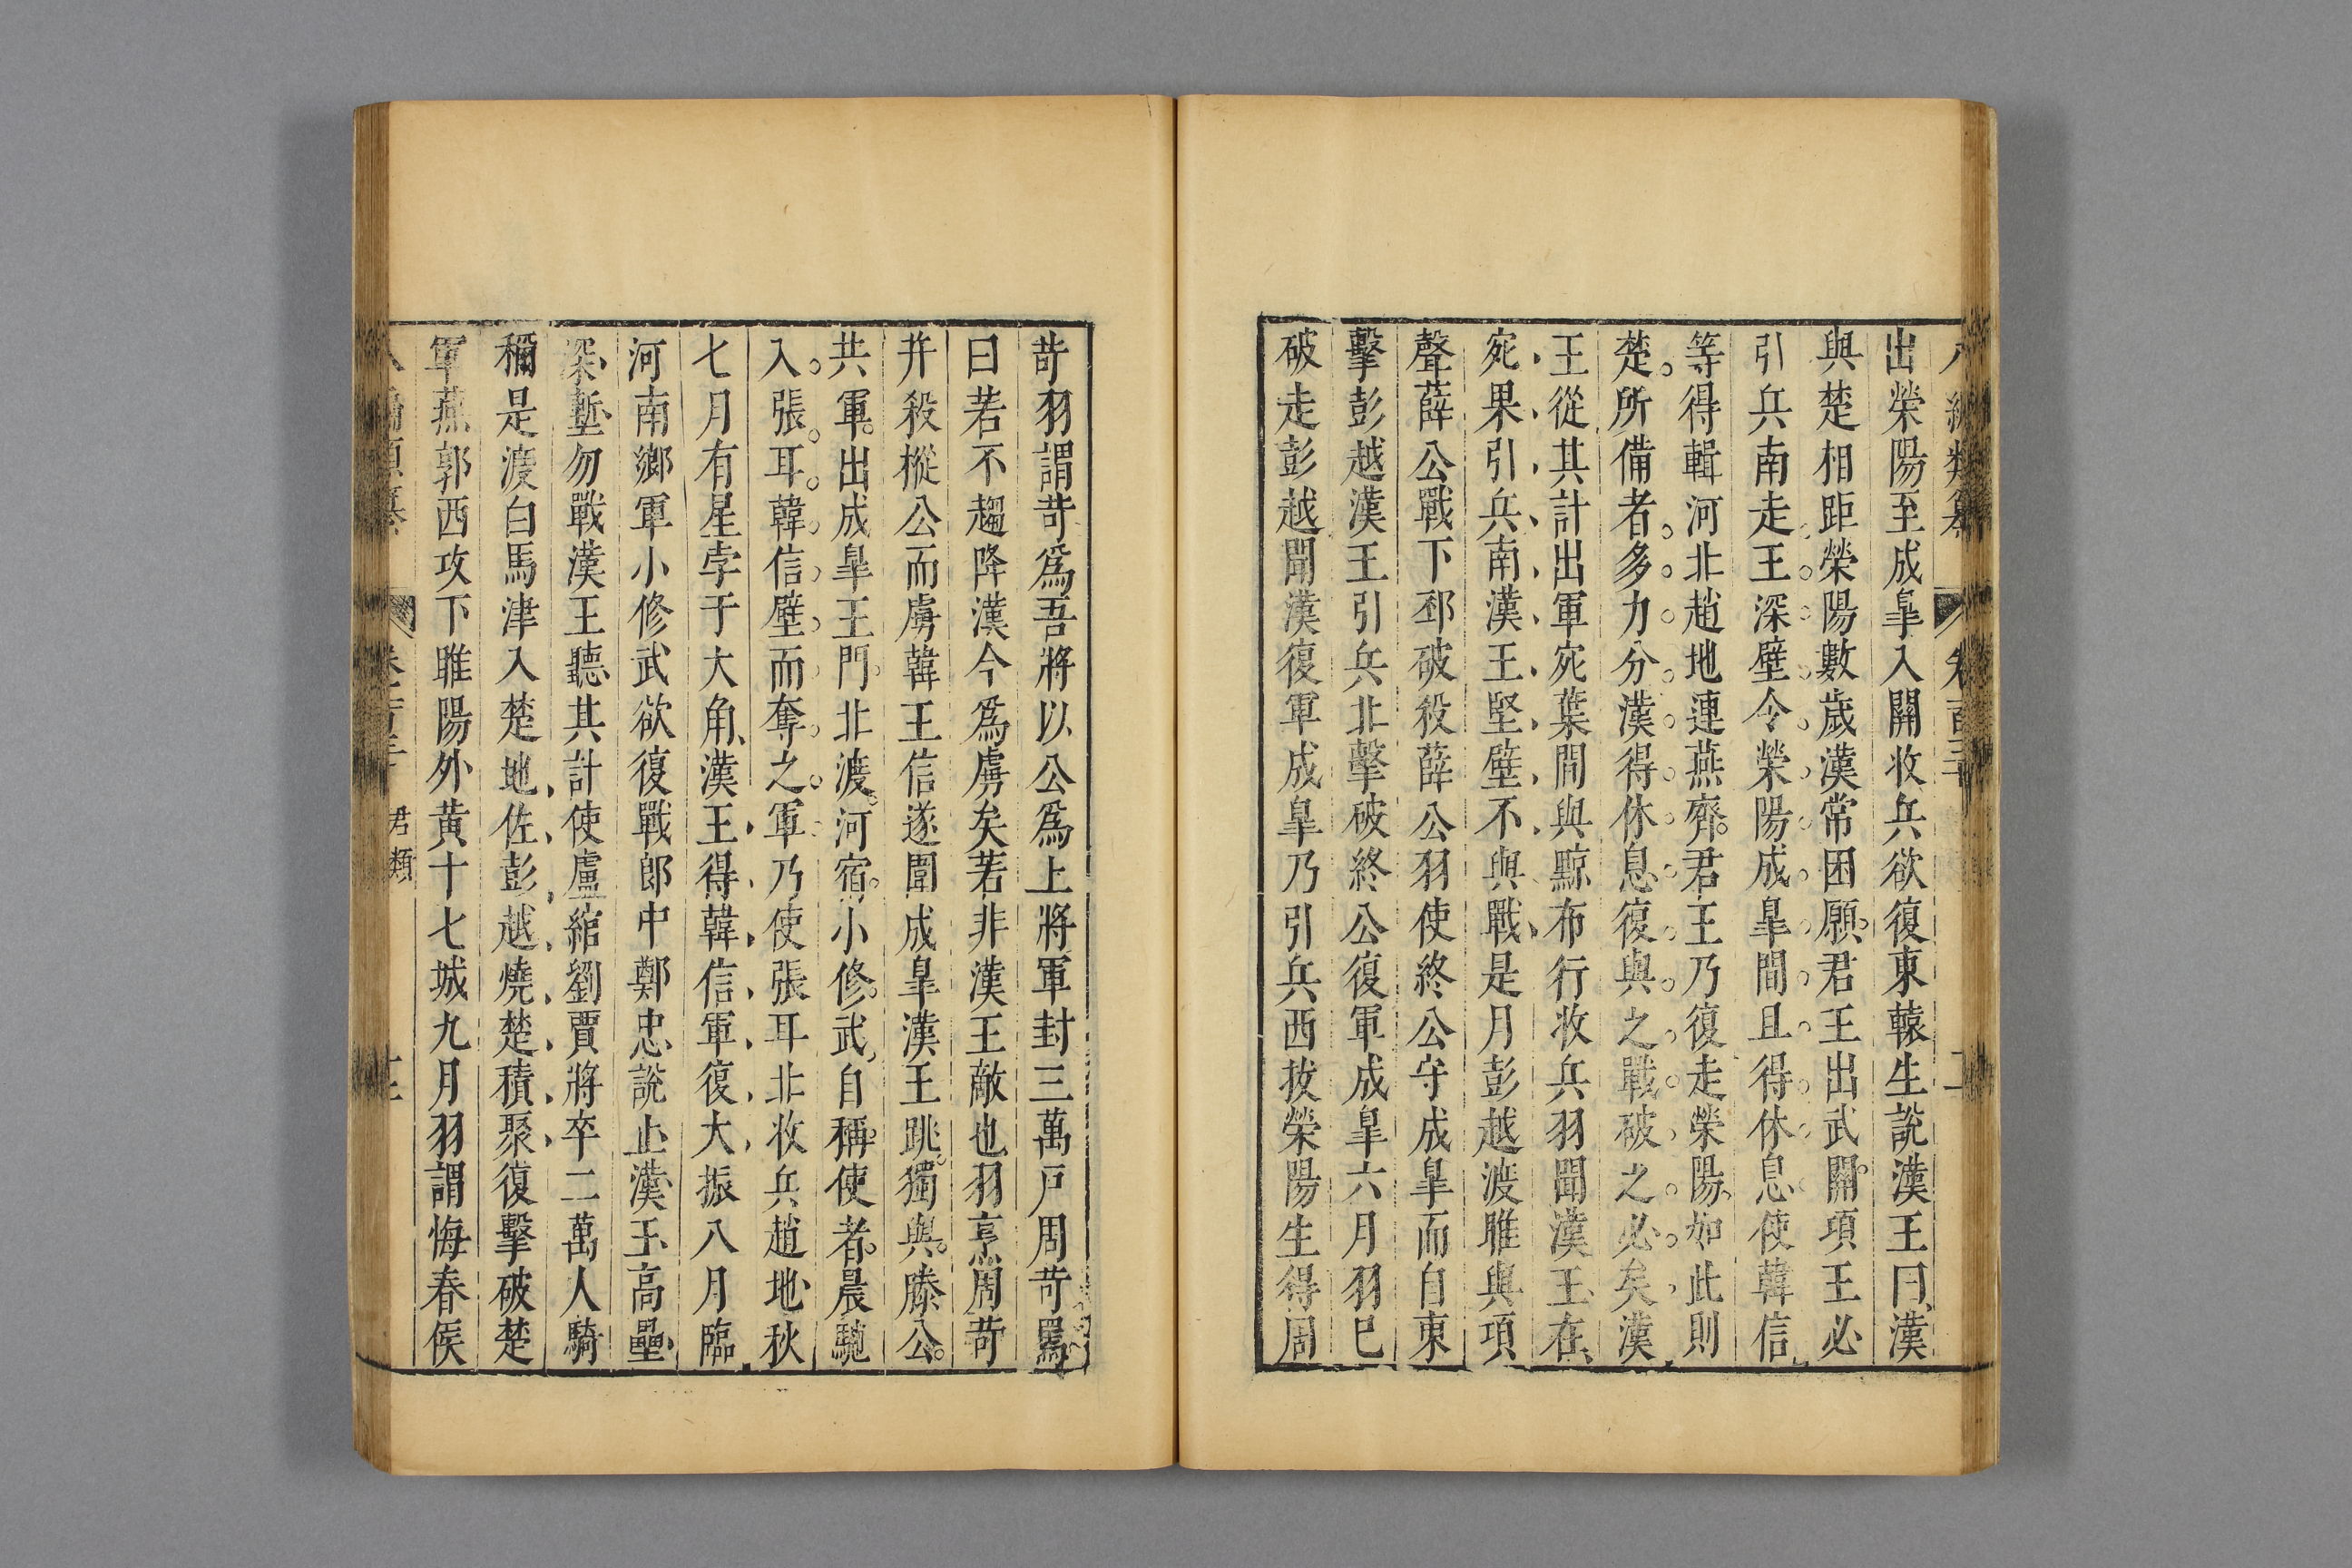 出榮陽至成臯入關收兵欲復東轅生說漢王曰漢
與楚相距榮陽數歲漢常困願君王出武關項王必
引兵南走王深壁令榮陽成臯間且得休息使韓信
等得輯河北趙地連燕齊君王乃復走榮陽如此則
楚所備者多力分漢得休息復與之戰破之必矣漢
王從其計出軍宛葉間與黥布行收兵羽聞漢王在
宛果引兵南漢王堅壁不與戰是月彭越渡睢與項
聲薛公戰下邳破殺薛公羽使終公守成臯而自東
擊彭越漢王引兵北擊破終公復軍成臯六月羽巳
破走彭越聞漢復軍成臯乃引兵西拔榮陽生得周
苛羽謂苛爲吾將以公爲上將軍封三萬戸周苛罵
曰若不趨降漢今爲虜矣若非漢王敵也羽烹周苛
并殺樅公而虜韓王信遂圍成臯漢王跳獨與滕公
共軍出成臯王門北渡河宿小修武自稱使者晨馳
入張耳韓信壁而奪之軍乃使張耳北收兵趙地秋
七月有星孛于大角漢王得韓信軍復大振八月臨
河南鄉軍小修武欲復戰郎中鄭忠說止漢王高壘
深塹勿戰漢王聽其計使盧綰劉賈將卒二萬人騎
穪是渡白馬津入楚地佐彭越燒楚積聚復擊破楚
軍燕郭西攻下睢陽外黃十七城九月羽謂悔春侯
君類